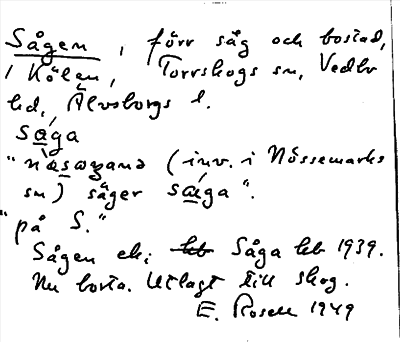 Sågen, förr såg och bostad,
i Kölen, Torrskogs sn, Vedbo
hd, Älvsborgs l.
sǽga
"nǽsægana (inv. i Nössemarks
sn) säger sǽga".
"på S."
Sågen ek; Såga leb 1939.
Nu borta. Utlagt till skog.
E. Rosell 1949